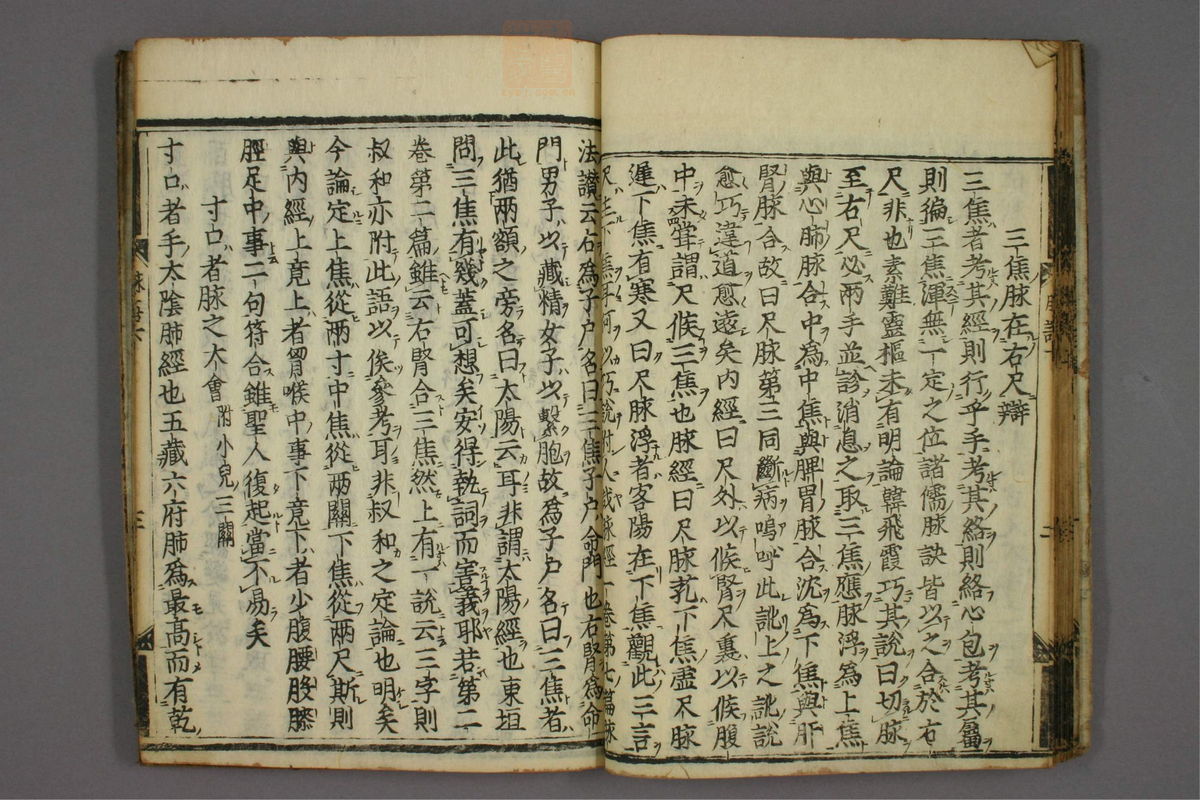 三焦脉在右尺辯
三焦者考其經則行乎手考其絡則絡心包考其屬
則徧三焦渾無一定之位諸儒脉訣皆以之合於右
尺非也素難靈樞未有明論韓飛霞巧其說曰切脉
至右尺必两手並診消息之取三焦應脉浮為上焦
與心肺脉合中為中焦與脾胃脉合沈為下焦與肝
腎脉合故曰尺脉第三同斷病嗚呼此訛上之訛說
愈巧違道愈遠矣内經曰尺外以候腎尺裏以候腹
中未聳謂尺候三焦也脉經曰尺脉芤下焦虛尺脉
遲下焦有寒又曰尺脉浮者客陽在下焦觀此三言
尺主下焦耳何以巧說附人哉脉經一卷第七篇脉
法讃云右為子户名曰三焦子户命門也右腎為命
門男子以藏精女子以繫胞故為子户名曰三焦者
此猶两額之旁名曰太陽云耳非謂太陽經也東垣
問三焦有幾蓋可想矣安得執詞而害義耶若第二
卷第二篇雖云右腎合三焦然上有一說云三字則
叔和亦附此語以俟參考耳非叔和之定論也明矣
今論定上焦從两寸中焦從两關下焦從两尺斯則
與内經上竟上者胷喉中事下竟下者少腹腰股膝
脛足中事二句符合雖聖人復起當不易矣
寸口者脉之大會附小兒三關
寸口者手太陰肺經也五藏六府肺為最高而有乾